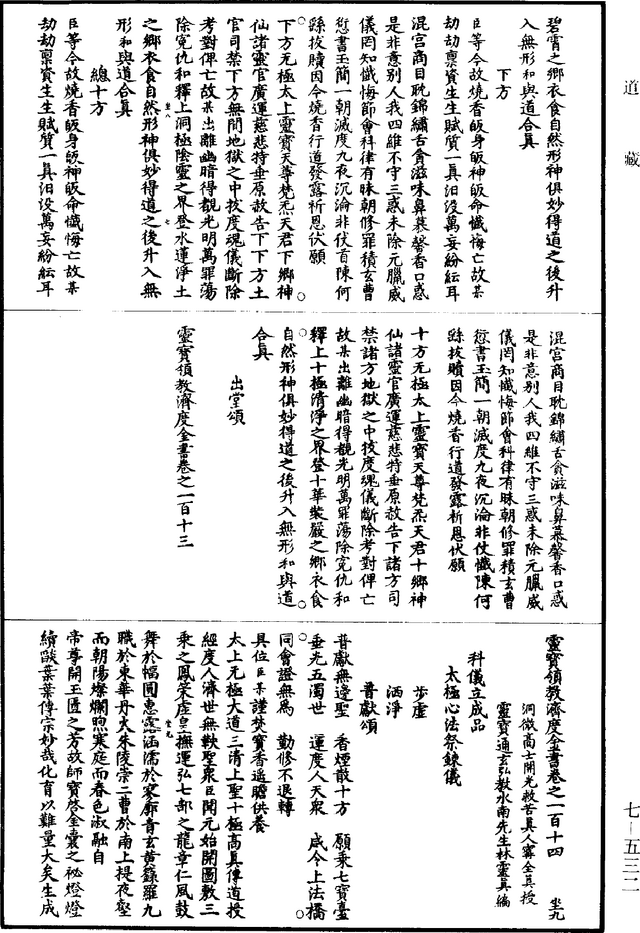 道藏
碧霄之鄉衣食自然形神俱妙得道之後升
入無形和與道合真
下方
臣等今故燒香皈身皈神皈命懺悔亡故某
劫劫稟資生生賦質一真汩没萬妄紛紜耳
混宮商目耽錦繡舌貪滋味鼻慕馨香口惑
是非意别人我四維不守三惑未除元臘威
儀罔知懺悔節會科律有昧朝修罪積玄曹
愆書玉簡一朝滅度九夜沉淪非仗首陳何
繇拔贖因今燒香行道發露祈恩伏願
下方無極太上靈寶天尊梵炁天君下鄉神
仙諸靈官廣運慈悲特垂原赦告下下方土
官司禁下方無間地獄之中拔度魂儀斷除
考對俾亡故某出離幽暗得覩光明萬罪蕩
除冤仇和釋上洞極陰靈之界登水蓮淨土
之鄉衣食自然形神俱妙得道之後升入無
形和與道合真
總十方
臣等今故燒香皈身皈神皈命懺悔亡故某
劫劫稟資生生賦質一真汩没萬妄紛紜耳
混宮商目耽錦繡舌貪滋味鼻慕馨香口惑
是非意别人我四維不守三惑未除元臘威
儀罔知懺悔節會科律有昧朝修罪積玄曹
愆書玉簡一朝滅度九夜沉淪非仗懺陳何
繇拔贖因今燒香行道發露祈恩伏願
十方無極太上靈寶天尊梵炁天君十鄉神
仙諸靈官廣運慈悲特垂原赦告下諸方司
禁諸方地獄之中拔度魂儀斷除考對俾亡
故某出離幽暗得覩光明萬罪蕩除冤仇和
釋上十極清淨之界登十華裝嚴之鄉衣食
自然形神俱妙得道之後升入無形和與道
合真
出堂頌
靈寶領教濟度金書卷之一百十三
靈寶領教濟度金書卷之一百十四 坐九
洞微高士開光救苦真人寗全真授
靈寶通玄弘教水南先生林靈真編
科儀立成品
太極心法祭鍊儀
步虛
洒淨
普獻頌
普獻無邊聖 香煙散十方 願乘七寶臺
垂光五濁世 運度人天眾 咸令上法橋
同會證無為 勤修不退轉
具位臣某謹焚寶香遥瞻供養
太上元極大道三清上聖十極高真傳道授
經度人濟世無鞅聖眾臣聞元始開圖敷三
乘之鳳篆虛皇撫運弘七部之龍章仁風鼓
舞於幅圓惠露涵濡於寥廓青玄黄籙羅九
職於東華丹火朱陵崇二曹於南上提夜壑
而朝陽燦爛煦寒庭而春色淑融自
帝尊開玉匱之芳故師寶啓金囊之祕燈燈
續燄葉葉傳宗妙哉化育以難量大矣生成
七－五三二